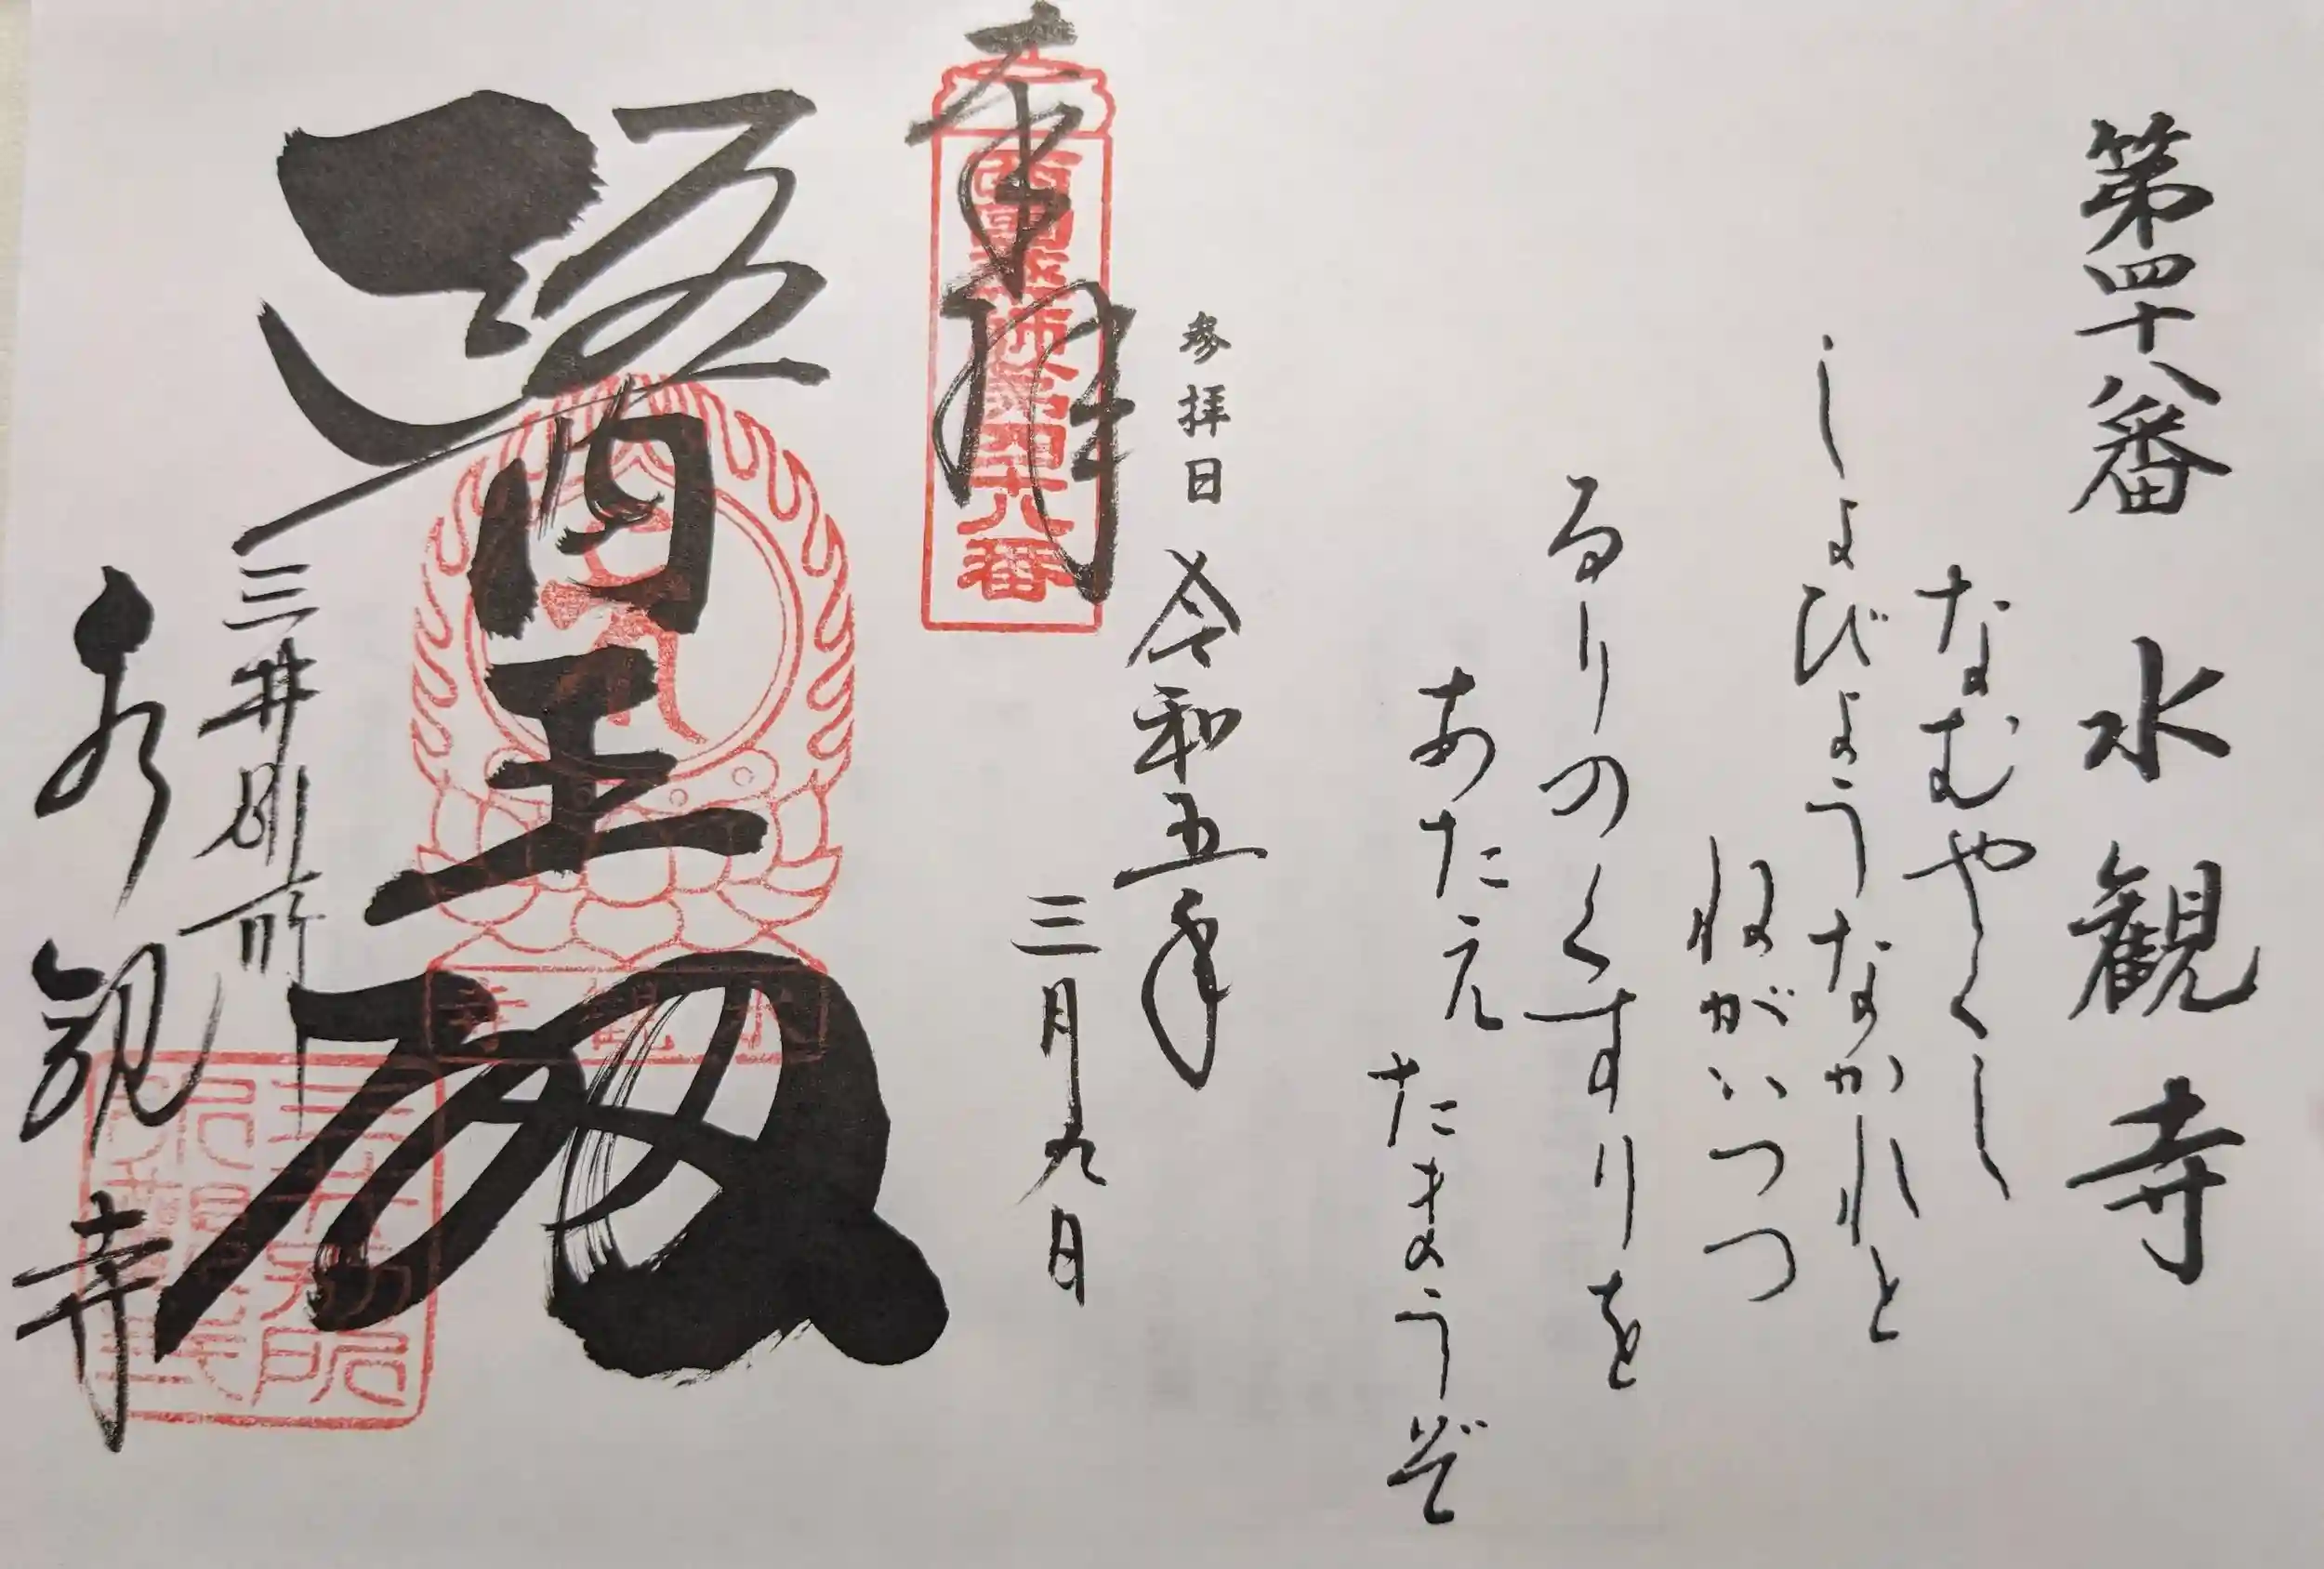 第四十八番 水観寺
なむやくし
しょびょうなかれと
ねがいつつ
るりのくすりを
あたえたまうぞ
参拝日 令和五年
三月九日
奉拝
西国薬師第四十八番
醫王殿
三井別所
水観寺